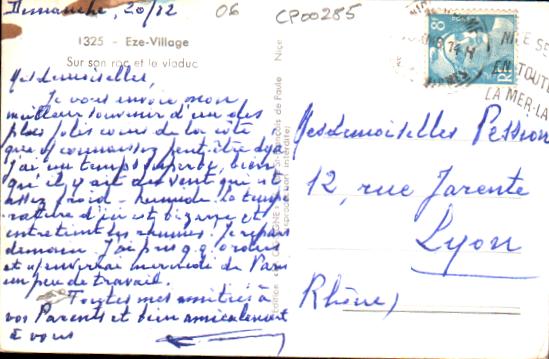 Dimanche, 20/12
06
CP00285
1325 - Eze-Village
Sur son roc et le viaduc
Mesdemoiselles,
Je vous envoie mon
meilleur souvenir d'un des
plus jolis coins de la côte
que v/ connaissez peut-être déjà
J'ai un temps superbe, bien
qu'il y ait du vent qui est
assez froid - humide. La temp-
érature d'ici est bizarre et
entretient les rhumes. Je repars
demain. J'ai pris q.q. ordres
et v/ enverrai mercredi de Paris
un peu de travail.
Toutes mes amitiés à
vos Parents et bien amicalement
à vous
Nice
reproduction interdite
8F
POSTES
RF
NICE SE
EN TOUTE
LA MER-LA
Mesdemoiselles Pession
12, rue Jarente
Lyon
Rhône)